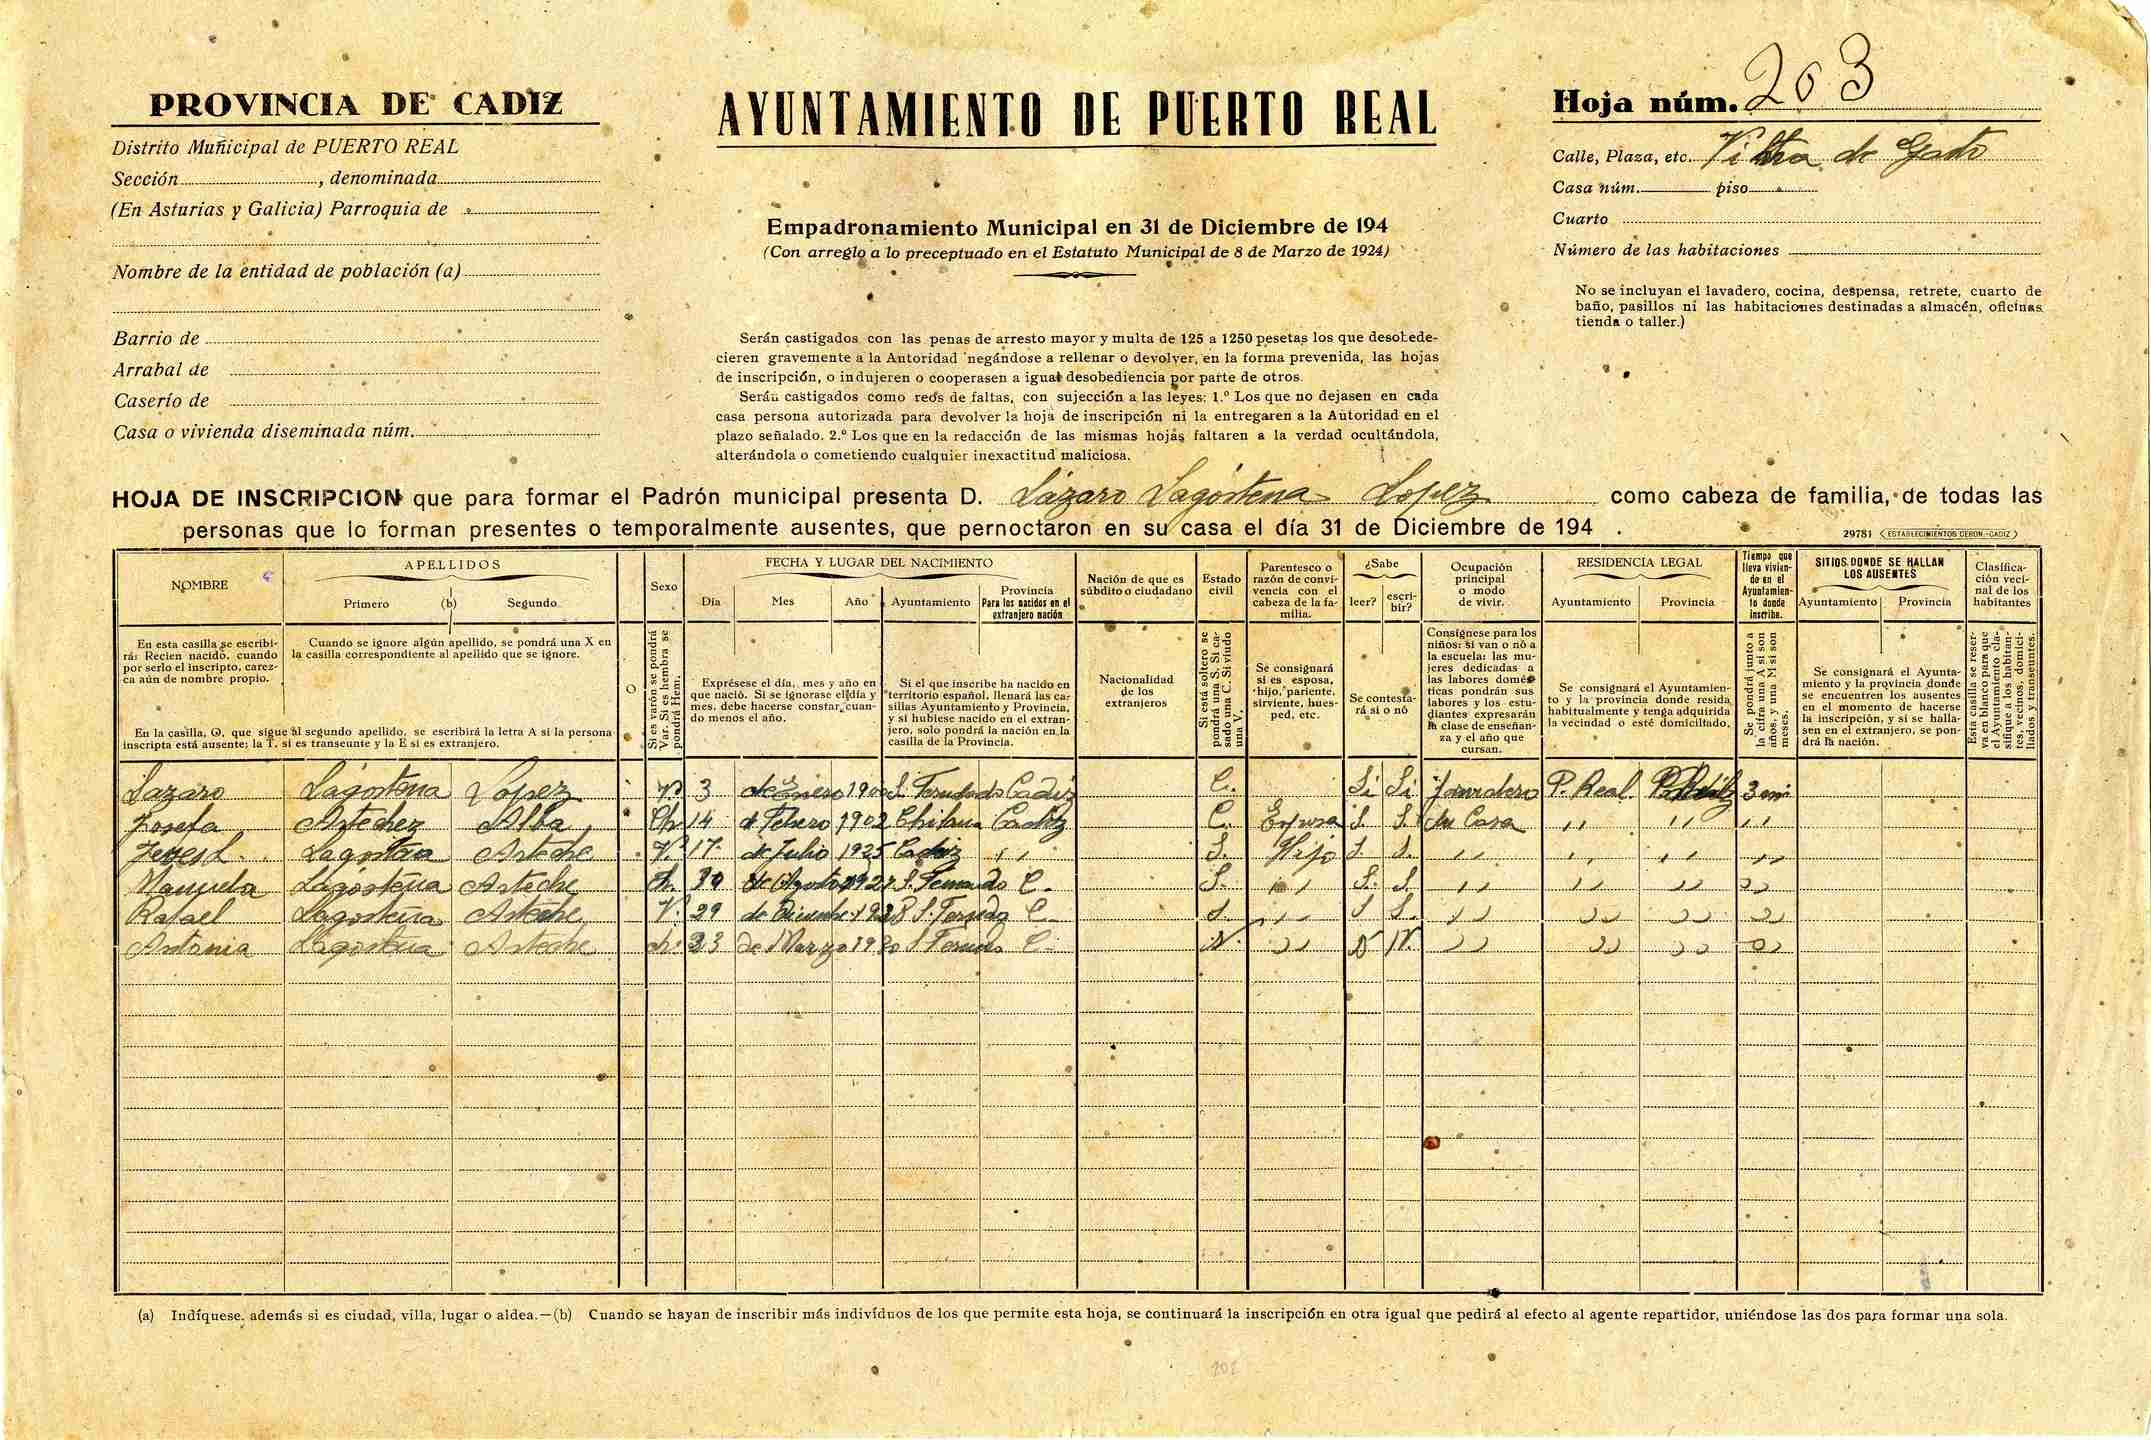 PROVINCIA DE CADIZ
Distrito Municipal de PUERTO REAL
Sección , denominada
(En Asturias y Galicia) Parroquia de
Nombre de la entidad de población (a)
Barrio de
Arrabal de
Caserío de
Casa o vivienda diseminada núm.
AYUNTAMIENTO DE PUERTO REAL
Empadronamiento Municipal en 31 de Diciembre de 194
(Con arreglo a lo preceptuado en el Estatuto Municipal de 8 de Marzo de 1924)
Serán castigados con las penas de arresto mayor y multa de 125 a 1250 pesetas los que desobede-
cieren gravemente a la Autoridad negándose a rellenar o devolver, en la forma prevenida, las hojas
de inscripción, o indujeren o cooperasen a igual desobediencia por parte de otros.
Serán castigados como reos de faltas, con sujección a las leyes: 1.º Los que no dejasen en cada
casa persona autorizada para devolver la hoja de inscripción ni la entregaren a la Autoridad en el
plazo señalado. 2.º Los que en la redacción de las mismas hojas faltaren a la verdad ocultándola,
alterándola o cometiendo cualquier inexactitud maliciosa.
Hoja núm. 203
Calle, Plaza, etc. de
Casa núm. piso
Cuarto
Número de las habitaciones
No se incluyan el lavadero, cocina, despensa, retrete, cuarto de
baño, pasillos ni las habitaciones destinadas a almacén, oficinas
tienda o taller.)
HOJA DE INSCRIPCION que para formar el Padrón municipal presenta D. Lázaro Lagóstena Lopez como cabeza de familia, de todas las
personas que lo forman presentes o temporalmente ausentes, que pernoctaron en su casa el día 31 de Diciembre de 194 .
29781 ESTABLECIMIENTOS CERON.-CADIZ
NOMBRE
APELLIDOS
Primero (b) Segundo
Sexo
FECHA Y LUGAR DEL NACIMIENTO
Día Mes Año Ayuntamiento
Provincia
Para los nacidos en el
extranjero nación
Nación de que es
súbdito o ciudadano
Estado
civil
Parentesco o
razón de convi-
vencia con el
cabeza de la fa-
milia.
¿Sabe
leer? escri-
bir?
Ocupación
principal
o modo
de vivir.
RESIDENCIA LEGAL
Ayuntamiento Provincia
Tiempo que
lleva vivien-
do en el
Ayuntamien-
to donde
inscribe.
SITIOS DONDE SE HALLAN
LOS AUSENTES
Ayuntamiento Provincia
Clasifica-
ción veci-
nal de los
habitantes
En esta casilla se escribi-
rá: Recien nacido, cuando
por serlo el inscripto, carez-
ca aún de nombre propio.
Cuando se ignore algún apellido, se pondrá una X en
la casilla correspondiente al apellido que se ignore.
En la casilla, O, que sigue al segundo apellido, se escribirá la letra A si la persona
inscripta está ausente; la T, si es transeunte y la E si es extranjero.
O
Si es varón se pondrá
Var. Si es hembra se
pondrá Hem.
Exprésese el día, mes y año en
que nació. Si se ignorase el día y
mes, debe hacerse constar, cuan-
do menos el año.
Si el que inscribe ha nacido en
territorio español, llenará las ca-
sillas Ayuntamiento y Provincia,
y si hubiese nacido en el extran-
jero, solo pondrá la nación en la
casilla de la Provincia.
Nacionalidad
de los
extranjeros
Si está soltero se
pondrá una S. Si ca-
sado una C. Si viudo
una V.
Se consignará
si es esposa,
hijo, pariente,
sirviente, hues-
ped, etc.
Se contesta-
rá si o nó
Consígnese para los
niños: si van o nó a
la escuela: las mu-
jeres dedicadas a
las labores domés-
ticas pondrán sus
labores y los estu-
diantes expresarán
la clase de enseñan-
za y el año que
cursan.
Se consignará el Ayuntamien-
to y la provincia donde resida
habitualmente y tenga adquirida
la vecindad o esté domiciliado.
Se pondrá junto a
la cifra una A si son
años, y una M si son
meses.
Se consignará el Ayunta-
miento y la provincia donde
se encuentren los ausentes
en el momento de hacerse
la inscripción, y si se halla-
sen en el extranjero, se pon-
drá la nación.
Esta casilla se reser-
va en blanco para que
el Ayuntamiento cla-
sifique a los habitan-
tes, vecinos, domici-
liados y transeuntes.
Lazaro Lagostena Lopez V. 3 de Enero S. Fernando Cadiz C. Si Si P. Real 3 m
Josefa Artechez Alba 14 d Febrero 1902 Chiclana Cadiz C. Esposa S. S. Su Casa ,, ,, ,,
Lagostena Arteche V. 17 de Julio 1925 Cadiz ,, S. Hijo S. S. ,, ,, ,, ,,
Manuela Lagosteña Arteche de Agosto S. Fernando C. S. ,, S. S. ,, ,, ,, ,,
Rafael Lagosteña Arteche V. 29 de Diciembre 1928 S. Fernando C. S ,, S S. ,, ,, ,, ,,
Antonia Lagostena Arteche h. 23 de Marzo S Fernando C. ,, N N. ,, ,, ,, ,,
(a) Indíquese, además si es ciudad, villa, lugar o aldea.—(b) Cuando se hayan de inscribir más indivíduos de los que permite esta hoja, se continuará la inscripción en otra igual que pedirá al efecto al agente repartidor, uniéndose las dos para formar una sola.